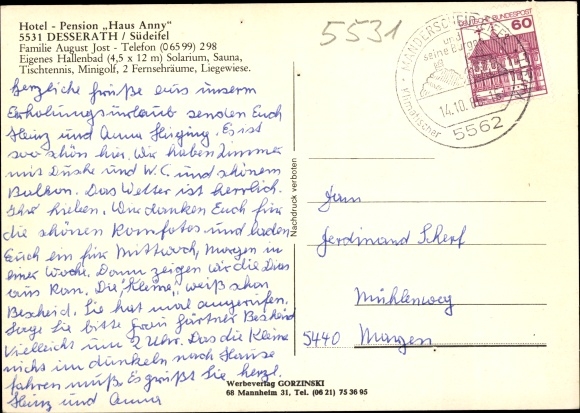 Hotel - Pension „Haus Anny"
5531 DESSERATH / Südeifel
Familie August Jost - Telefon (0 65 99) 2 98
Eigenes Hallenbad (4,5 x 12 m) Solarium, Sauna,
Tischtennis, Minigolf, 2 Fernsehräume, Liegewiese.
Herzliche Grüße aus unserm
Erholungsurlaub senden Euch
Heinz und Anna. Es ist
soo schön hier. Wir haben Zimmer
mit Duske und W.C. und schönem
Balkon. Das Wetter ist herrlich.
Ihr Lieben. Wir danken Euch für
die schönen Romfotos und laden
Euch ein für Mittwoch, Morgen in
einer Woche. Dann zeigen wir die Dias
aus Rom. Die "Kleine" weiß schon
Bescheid. Sie hat mal angerufen.
Sage Sie bitte Frau Gärtner Bescheid
Vielleicht um 2 Uhr. Das die Kleine
nicht im dunkeln nach Hause
fahren muß. Es grüßt Sie herzl.
Heinz und Anna
Nachdruck verboten
5531
MANDERSCHEID
seine Burgen
14.10.
5562
DEUTSCHE BUNDESPOST
60
Fam
Ferdinand Scherf
Mühlenweg
5440 Mayen
Werbeverlag GORZINSKI
68 Mannheim 31, Tel. (06 21) 75 36 95